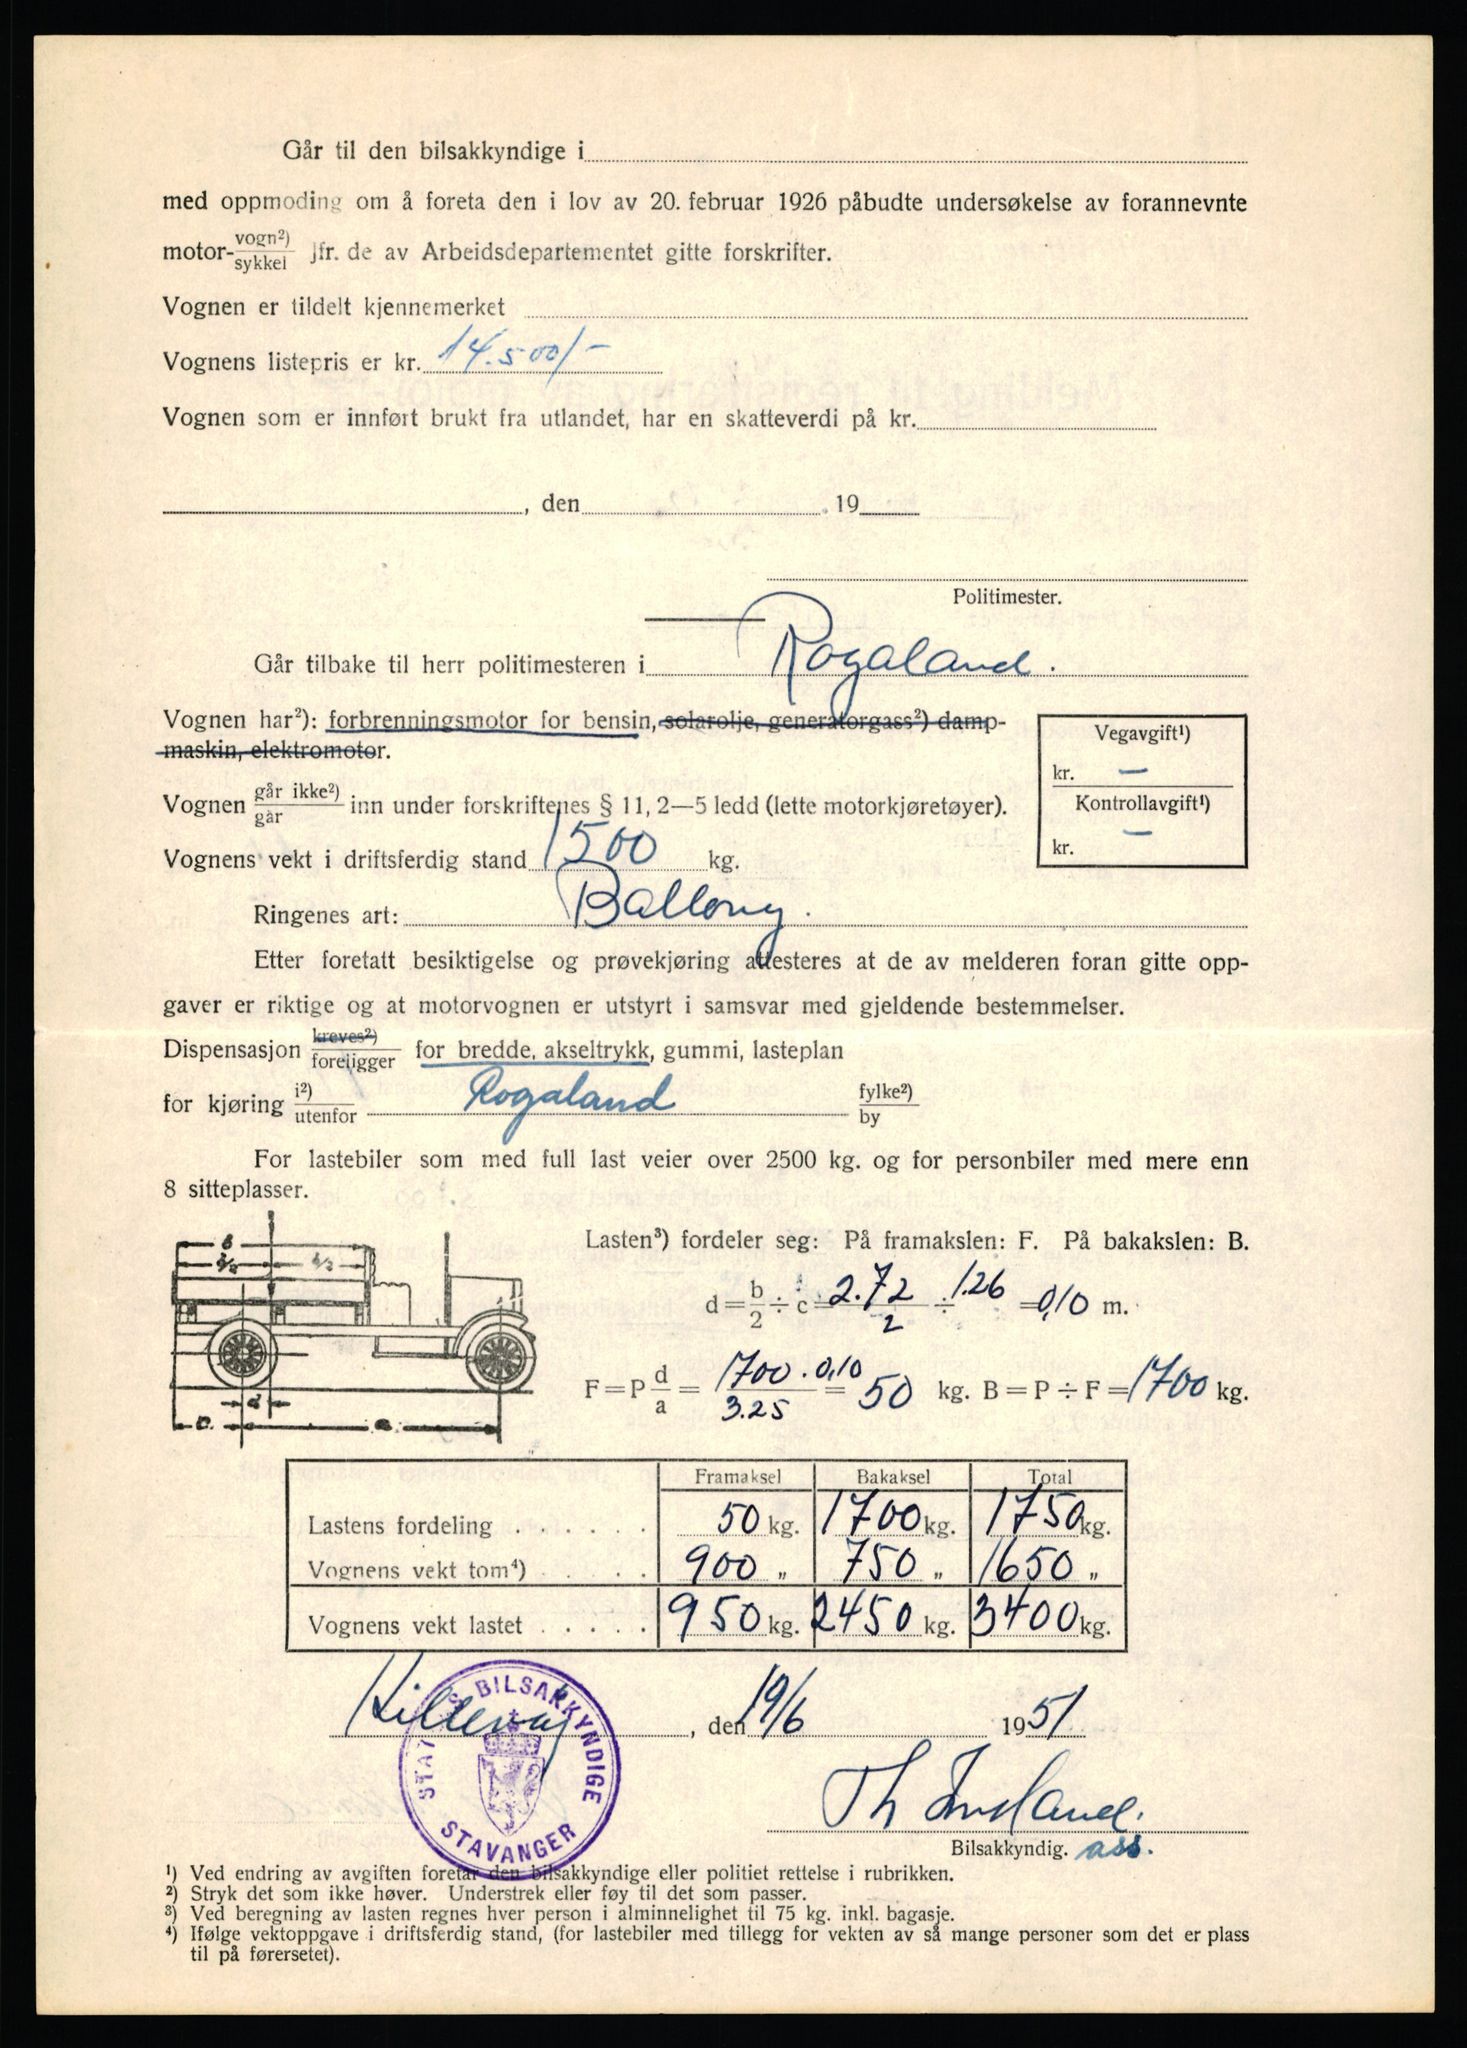 Går til den bilsakkyndige i
med oppmoding om å foreta den i lov av 20. februar 1926 påbudte undersøkelse av forannevnte
motor- vogn²) / sykkel jfr. de av Arbeidsdepartementet gitte forskrifter.
Vognen er tildelt kjennemerket
Vognens listepris er kr. 14.500/-
Vognen som er innført brukt fra utlandet, har en skatteverdi på kr.
, den 19
Politimester.
Går tilbake til herr politimesteren i Rogaland.
Vognen har²): forbrenningsmotor for bensin, solarolje, generatorgass²) damp-
maskin, elektromotor.
Vegavgift¹)
kr. —
Kontrollavgift¹)
kr. —
Vognen går ikke²) / går inn under forskriftenes § 11, 2—5 ledd (lette motorkjøretøyer).
Vognens vekt i driftsferdig stand 1500 kg.
Ringenes art: Ballong.
Etter foretatt besiktigelse og prøvekjøring attesteres at de av melderen foran gitte opp-
gaver er riktige og at motorvognen er utstyrt i samsvar med gjeldende bestemmelser.
Dispensasjon kreves²) / foreligger for bredde, akseltrykk, gummi, lasteplan
for kjøring i²) / utenfor Rogaland fylke²) / by
For lastebiler som med full last veier over 2500 kg. og for personbiler med mere enn
8 sitteplasser.
Lasten³) fordeler seg: På framakslen: F. På bakakslen: B.
d = b/2 ÷ c = 2.72/2 ÷ 1.26 = 0,10 m.
F = P d/a = 1700 . 0,10 / 3.25 = 50 kg. B = P ÷ F = 1700 kg.
Framaksel Bakaksel Total
Lastens fordeling . . . . . . 50 kg. 1700 kg. 1750 kg.
Vognens vekt tom⁴) . . . . . 900 „ 750 „ 1650 „
Vognens vekt lastet . . . . . 950 kg. 2450 kg. 3400 kg.
Hillevåg, den 19/6 1951
STATENS BILSAKKYNDIGE
STAVANGER
Bilsakkyndig. ass.
¹) Ved endring av avgiften foretar den bilsakkyndige eller politiet rettelse i rubrikken.
²) Stryk det som ikke høver. Understrek eller føy til det som passer.
³) Ved beregning av lasten regnes hver person i alminnelighet til 75 kg. inkl. bagasje.
⁴) Ifølge vektoppgave i driftsferdig stand, (for lastebiler med tillegg for vekten av så mange personer som det er plass
til på førersetet).